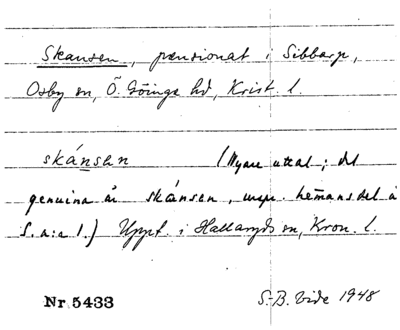 Skansen, pensionat i Sibbarp,
Osby sn, Ö. Göinge hd, Krist. l.
skánsen (Nyare uttal; det
genuina är skánsen, urspr. hemansdel å
S. a: a 1.) Uppt. i Hallaryds sn, Kron. l.
Nr 5433 S-B. Vide 1948